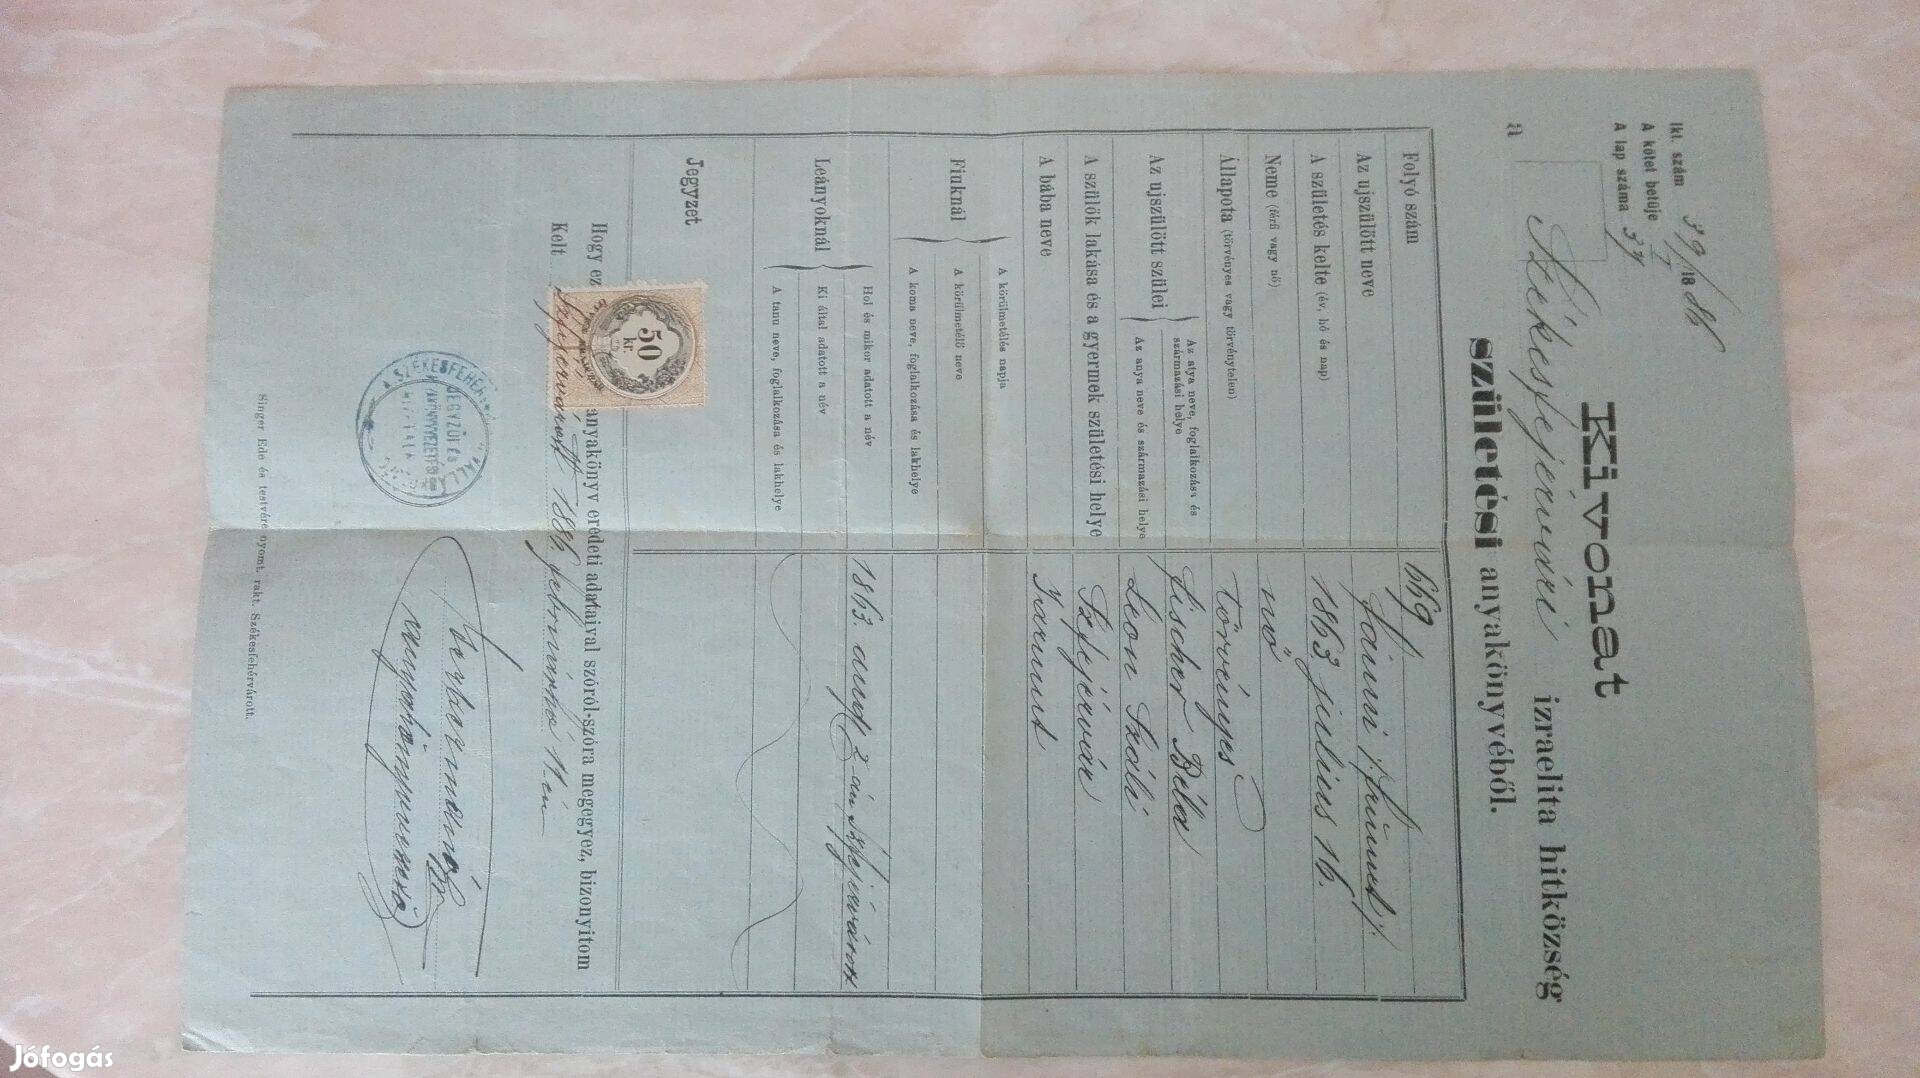 Ikt. szám 39/1886
A kötet betűje I
A lap száma 37
Kivonat
a Székesfejérvári izraelita hitközség
születési anyakönyvéből.
Folyó szám 669
Az ujszülött neve Fáinni
A születés kelte (év, hó és nap) 1863 julius 16.
Neme (férfi vagy nő) nő
Állapota (törvényes vagy törvénytelen) törvényes
Az ujszülött szülei
Az atya neve, foglalkozása és származási helye Fischer Béla
Az anya neve és származási helye Leon Száli
A szülők lakása és a gyermek születési helye Szfejérvár
A bába neve
Fiuknál
A körülmetélés napja
A körülmetélő neve
A koma neve, foglalkozása és lakhelye
Leányoknál
Hol és mikor adatott a név 1863. aug. 2-án Szfejérvárott
Ki által adatott a név
A tanu neve, foglalkozása és lakhelye
Jegyzet
50
kr.
Hogy ez anyakönyv eredeti adataival szóról-szóra megegyez, bizonyitom
Kelt Szfejérvárott 1886. februárhó 11-én
anyakönyvvezető
Singer Ede és testvére nyomt. rakt. Székesfehérvárott.
Jófogás